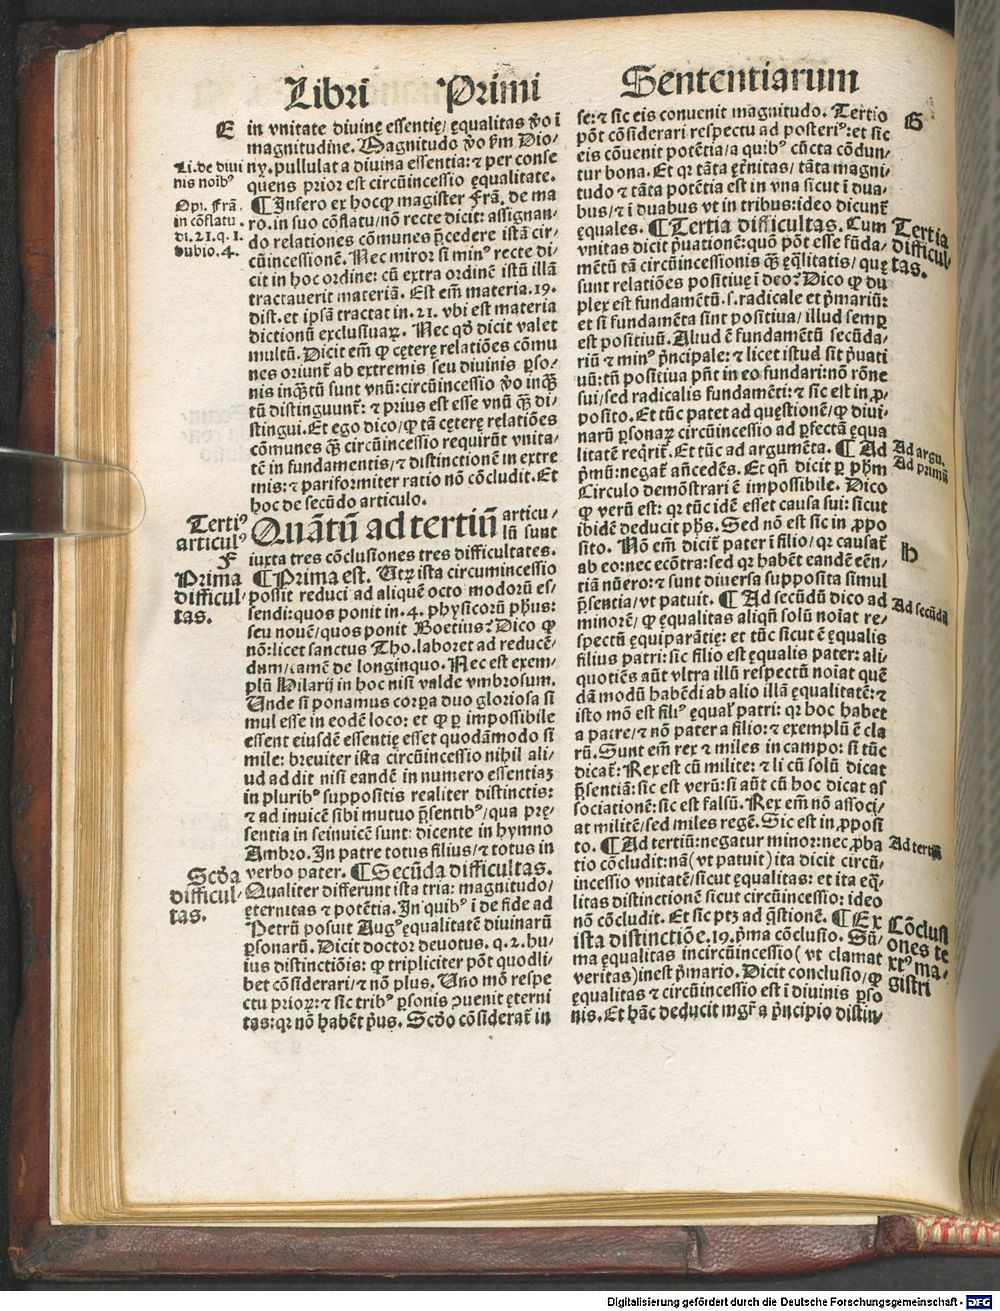 Libri Primi Sententiarum
E
in vnitate diuinę essentię/ ęqualitas ꝟo ī
magnitudine. Magnitudo ꝟo ẜm Dio-
Li. de diui
nis noībꝰ
ny. pullulat a diuina essentia: ⁊ per conse
quens prior est circūincessio ęqualitate.
Opi. frā.
in cōflatu.
di. 21. q. 1.
dubio. 4.
¶ Infero ex hoc ꝙ magister Frā. de ma
ro. in suo cōflatu/ nō recte dicit: assignan/
do relationes cōmunes p̄cedere istā cir/
cūincessionē. Nec miror si minꝰ recte di/
cit in hoc ordine: cū extra ordinē istū illā
tractauerit materiā. Est em̄ materia. 19.
dist. et ipsā tractat in. 21. vbi est materia
dictionū exclusiuaꝝ. Nec qď dicit valet
multū. Dicit em̄ ꝙ cęterę relatiōes cōmu
nes oriunt̄ ab extremis seu diuinis ꝑso/
nis inꝙ̄tū sunt vnū: circūincessio ꝟo inꝙ̄
tū distinguunt̄: ⁊ prius est esse vnū ꝙ̄ di/
stingui. Et ego dico/ ꝙ tā cęterę relatiōes
cōmunes ꝙ̄ circūincessio requirūt vnita/
tē in fundamentis/ ⁊ distinctionē in extre
mis: ⁊ pariformiter ratio nō cōcludit. Et
hoc de secūdo articulo.
Tertiꝰ
articulꝰ
Quātū ad tertiū articu/
lū sunt
F
iuxta tres cōclusiones tres difficultates.
Prima
difficul/
tas.
¶ Prima est. Utꝝ ista circumincessio
possit reduci ad aliquē octo modorū es/
sendi: quos ponit in. 4. physicorū ph̄us:
seu nouē/ quos ponit Boetius? Dico ꝙ
nō: licet sanctus Tho. laboret ad reducē/
dum/ tamē de longinquo. Nec est exem/
plū Hilarij in hoc nisi valde vmbrosum.
Unde si ponamus corꝑa duo gloriosa si
mul esse in eodē loco: et ꝙ ꝑ impossibile
essent eiusdē essentię esset quodāmodo si
mile: breuiter ista circūincessio nihil ali/
ud addit nisi eandē in numero essentiaꝫ
in pluribꝰ suppositis realiter distinctis:
⁊ ad inuicē sibi mutuo p̄sentibꝰ/ qua prę/
sentia in seinuicē sunt: dicente in hymno
Ambro. In patre totus filius/ ⁊ totus in
verbo pater. ¶ Secūda difficultas.
Scďa
difficul/
tas.
Qualiter differunt ista tria: magnitudo/
ęternitas ⁊ potētia. In quibꝰ ī de fide ad
Petrū posuit Augꝰ ęqualitatē diuinarū
ꝑsonarū. Dicit doctor deuotus. q. 2. hu/
ius distinctiōis: ꝙ tripliciter pōt quodli/
bet cōsiderari/ ⁊ nō plus. Uno mō respe
ctu prioꝝ: ⁊ sic tribꝰ ꝑsonis ꝯuenit ęterni
tas: qr nō habēt p̄us. Scďo cōsiderat̄ in
se: ⁊ sic eis conuenit magnitudo. Tertio
G
pōt cōsiderari respectu ad posteriꝰ: et sic
eis cōuenit potētia/ a quibꝰ cūcta cōdun/
tur bona. Et qr tāta ęt̄nitas/ tāta magni/
tudo ⁊ tāta potētia est in vna sicut ī dua/
bus/ ⁊ ī duabus vt in tribus: ideo dicunt̄
ęquales. ¶ Tertia difficultas. Cum
Tertia
difficul/
tas.
vnitas dicit p̄uationē: quō pōt esse fūda/
mētū tā circūincessionis ꝙ̄ ęq̄litatis/ quę
sunt relatiōes positiuę ī deo? Dico ꝙ du
plex est fundamētū. s. radicale et p̄mariū:
et si fundamēta sint positiua/ illud semꝑ
est positiuū. Aliud ē fundamētū secūda/
riū ⁊ minꝰ p̄ncipale: ⁊ licet istud sit p̄uati
uū: tn̄ positiua pn̄t in eo fundari: nō rōne
sui/ sed radicalis fundamēti: ⁊ sic est in ꝓ/
posito. Et tūc patet ad quęstionē/ ꝙ diui/
narū ꝑsonaꝝ circūincessio ad ꝑfectā ęqua
litatē reqrit̄. Et tūc ad argumēta. ¶ Ad
Ad argu.
Ad primū
p̄mū: negat̄ añcedēs. Et qn̄ dicit ꝑ ph̄m
Circulo demōstrari ē impossibile. Dico
ꝙ verū est: qr tūc idē esset causa sui: sicut
ibidē deducit ph̄s. Sed nō est sic in ꝓpo
sito. Nō em̄ dicit̄ pater ī filio/ qr causat̄
H
ab eo: nec ecōtra: sed qr habēt eandē eēn/
tiā nūero: ⁊ sunt diuersa supposita simul
p̄sentia/ vt patuit. ¶ Ad secūdū dico ad
Ad secūdū
minorē/ ꝙ ęqualitas aliqn̄ solū noīat re/
spectū ęquiparātię: et tūc sicut ē ęqualis
filius patri: sic filio est ęqualis pater: ali/
quotiēs aūt vltra illū respectū noīat quē
dā modū habēdi ab alio illā ęqualitatē: ⁊
isto mō est filiꝰ ęqual' patri: qr hoc habet
a patre/ ⁊ nō pater a filio: ⁊ exemplū ē cla
rū. Sunt em̄ rex ⁊ miles in campo: si tūc
dicat̄: Rex est cū milite: ⁊ li cū solū dicat
p̄sentiā: sic est verū: si aūt cū hoc dicat as
sociationē: sic est falsū. Rex em̄ nō associ/
at militē/ sed miles regē. Sic est in ꝓposi
to. ¶ Ad tertiū: negatur minor: nec ꝓba
Ad tertiū
tio cōcludit: nā (vt patuit) ita dicit circū/
incessio vnitatē/ sicut ęqualitas: et ita eq̄/
litas distinctionē sicut circūincessio: ideo
nō cōcludit. Et sic ptꝫ ad q̄stionē. ¶ Ex
Cōclusi
ones te
xtꝰ ma/
gistri
ista distinctiōe. 19. p̄ma cōclusio. Sū/
ma ęqualitas incircūincessio (vt clamat
veritas) inest p̄mario. Dicit conclusio/ ꝙ
ęqualitas ⁊ circūincessio est ī diuinis ꝑso
nis. Et hāc deducit mgr̄ a p̄ncipio distin/
Digitalisierung gefördert durch die Deutsche Forschungsgemeinschaft - DFG